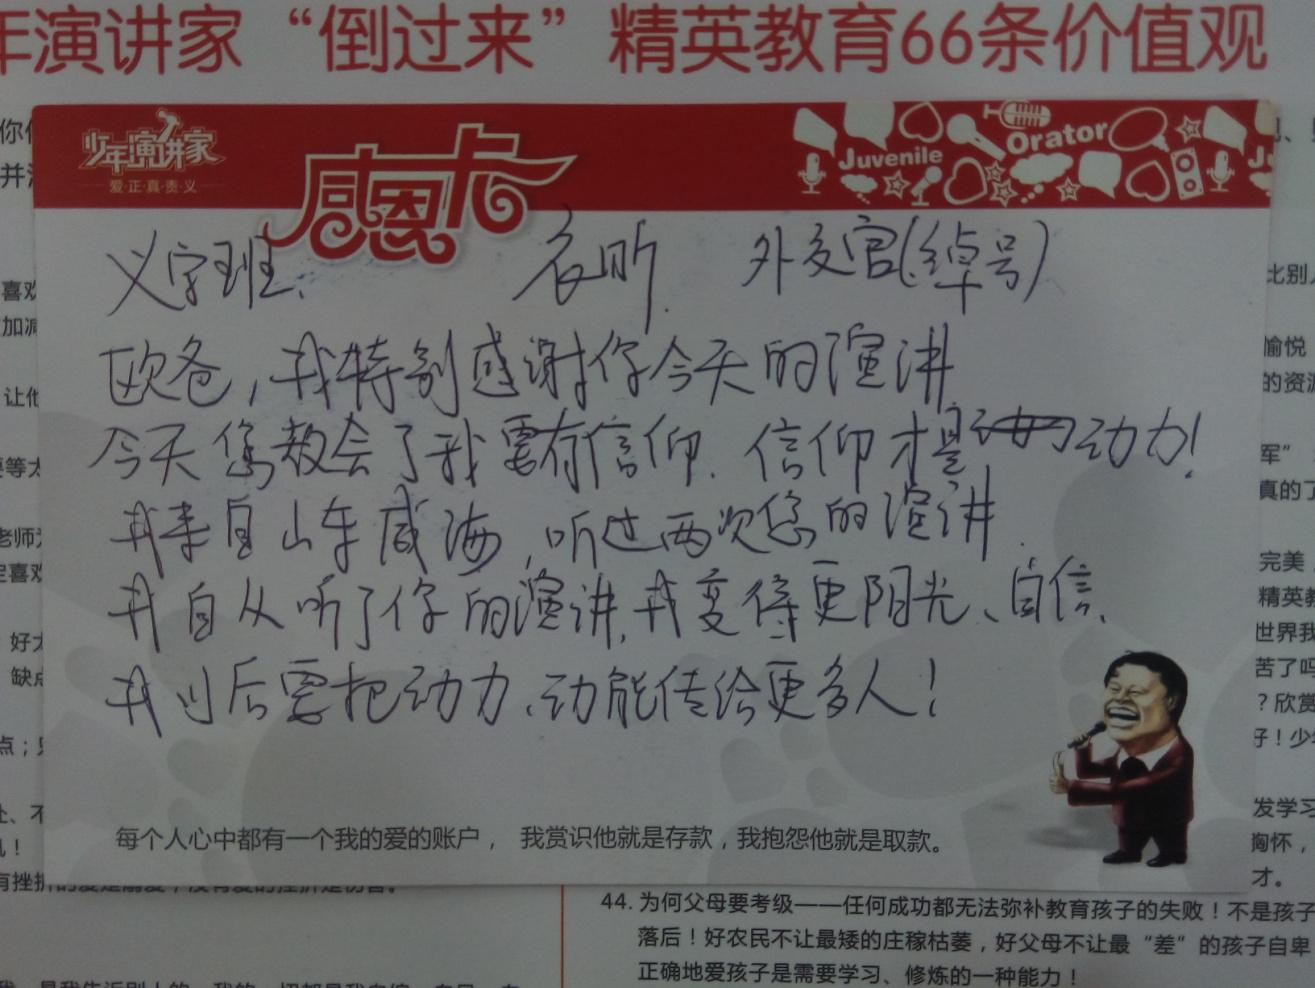 年演讲家“倒过来”精英教育66条价值观
少年演讲家
爱·正·真·责·义
感恩卡
Juvenile Orator
义字班. 衣昕. 外交官(绰号)
欧爸,我特别感谢你今天的演讲
今天您教会了我要有信仰.信仰才是动力!
我来自山东威海,听过两次您的演讲.
我自从听了你的演讲,我变得更阳光、自信.
我以后要把动力、动能传给更多人!
每个人心中都有一个我的爱的账户, 我赏识他就是存款,我抱怨他就是取款。
44. 为何父母要考级——任何成功都无法弥补教育孩子的失败!不是孩子
落后!好农民不让最矮的庄稼枯萎,好父母不让最“差”的孩子自卑
正确地爱孩子是需要学习、修炼的一种能力!
你
并
喜欢
加减
让他
要等太
老师
定喜欢
好太
缺点
点;
处、不
比别
愉悦
的资源
军”
真的了
完美
精英教
世界我
苦了吗
?欣赏
好!少
发学习
胸怀,
才。